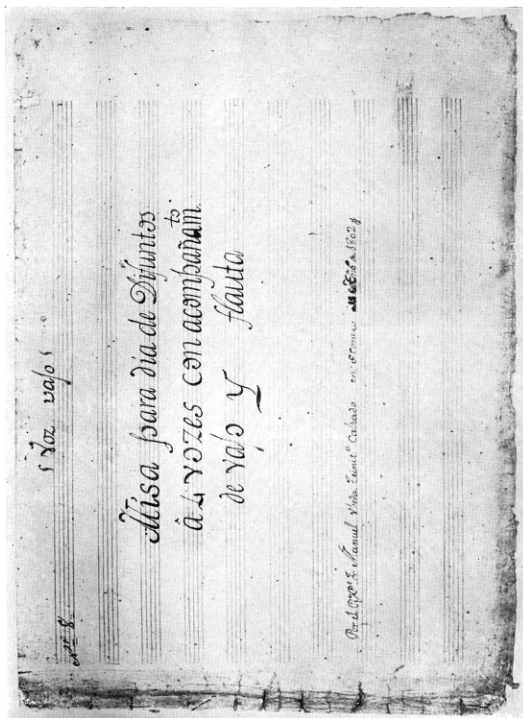 Nº 8.
Voz vaso
Misa para dia de Difuntos
â 4 vozes con acompañam.to
de vaso Y flauta
Por el Manuel Calzado en 1802